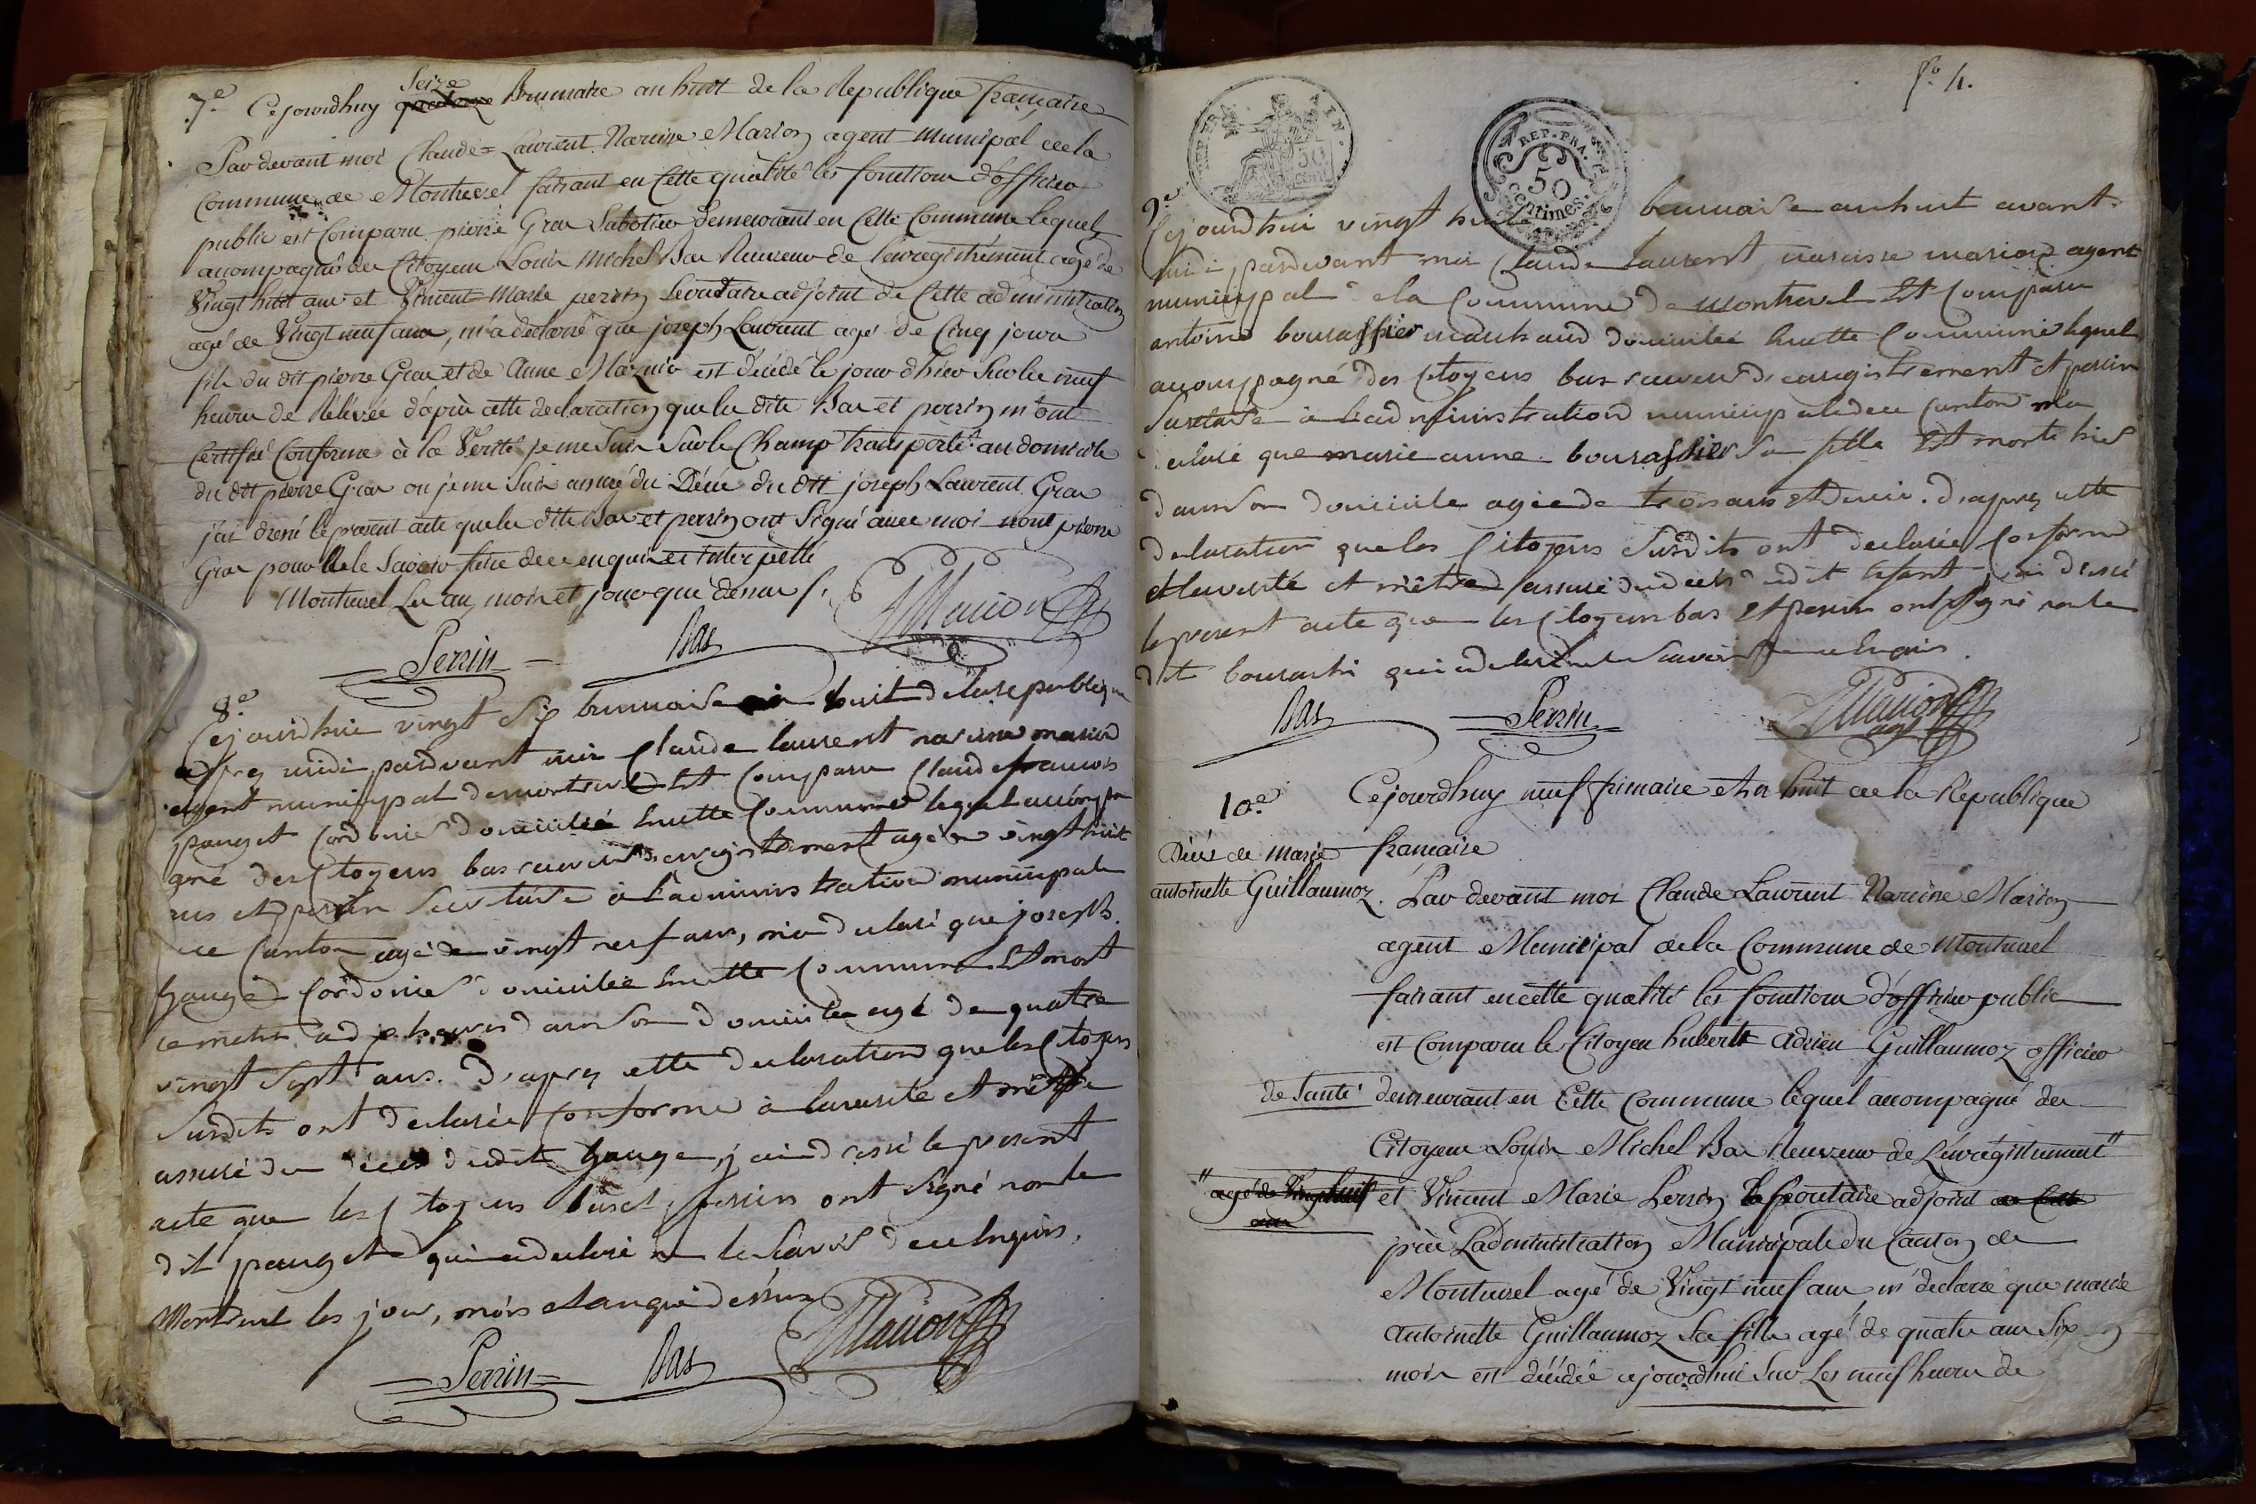 7.e Cejourdhuy quatorze Seize Brumaire an huit de la Republique française
Par devant moi Claude = Laurent Narcisse Marion agent municipal de la
Commune de Montrevel faisant en Cette qualité les fonctions d'officier
public est Comparu pierre Gras Sabotier demeurant en Cette Commune lequel
accompagné des Citoyens Louis Michel Bas Receveur de l'enregistrement agé de
Vingt huit ans et Vincent Marie perrin Secretaire adjoint de Cette administration
agé de Vingt neuf ans, m'a declaré que joseph Laurent agé de Cinq jours
fils du dit pierre Gras et de Anne est décédé le jour d'hier Sur les neuf
heures de Relevée d'après cette declaration que les dits Bas et perrin m'ont
Certifié Conforme à la Verité je me suis Sur le Champ transporté au domicile
du dit pierre Gras ou je me Suis assuré du Décès du dit joseph Laurent Gras
j'ai dressé le présent acte que les dits Bas et perrin ont Signé avec moi non pierre
Gras pour ne le Savoir faire de ce enquis et interpellé
Montrevel Les an, mois et jour que dessus
Perrin Bas Marion
8.e
Cejourdhui vingt Six brumaire an huit de la republique
après midi pardevant moi Claude laurent narcisse marion
agent municipal de montrevel Est Comparu Claude francois
pauget Cordonier domicilié En cette Commune lequel accompa
gné des Citoyens bas receveur d'enregistrement agé de vingt huit
ans et perrin Secretaire à l'administration municipale
de Canton agé de vingt neuf ans, m'a declaré que joseph
Cordonier domicilié En cette Commune Est mort
ce matin à dix heures dans Son domicile agé de quatre
vingt Sept ans. D'après cette declaration que les Citoyens
Susdits ont declarée Conforme à la verité et m'être
assuré du décès dudit j'ai dressé le present
acte que les Citoyens bas et perrin ont signé non le
dit pauget qui a declaré ne le Savoir de ce Enquis,
Montrevel les jour, mois et an que dessus
Perrin Bas Marion
f.o 4.
REP. FRA. 50 centimes.
9.e
Cejourd'hui vingt huit brumaire an huit avant
midi pardevant moi Claude laurent narcisse marion agent
municipal de la Commune de montrevel Est Comparu
antoine bourassier marchand domicilié En cette Commune lequel
accompagné des Citoyens bas receveur d'enregistrement et perrin
Secretaire à l'administration municipale de ce Canton m'a
declaré que marie anne bourassier Sa fille Est morte hier
dans Son domicile agée de trois ans et demi. D'après cette
declaration que les Citoyens Susdits ont declarée Conforme
à la verité et m'être assuré du décès dudit Enfant j'ai dressé
le present acte que les Citoyens bas et perrin ont Signé non le
dit qui a declaré ne le Savoir de ce Enquis.
Bas Perrin Marion
10.e Cejourdhuy neuf frimaire et an huit de la Republique
française
Décès de marie
antoinette Guillaumoz.
Par devant moi Claude Laurent Narcisse Marion
agent Municipal de la Commune de Montrevel
faisant en cette qualité les fonctions d'officier public
est Comparu le Citoyen hubert Adrien Guillaumoz officier
de Santé demeurant en Cette Commune lequel accompagné des
Citoyens Louis Michel Bas Receveur de L'enregistrement "
" agé de Vingt huit ans
et Vincent Marie Perrin Secretaire adjoint de Cette
près L'administration Municipale du Canton de
Montrevel agé de Vingt neuf ans m'declaré que marie
antoinette Guillaumoz Sa fille agé de quatre ans Six
mois est décédée cejourdhui Sur Les neuf heures de